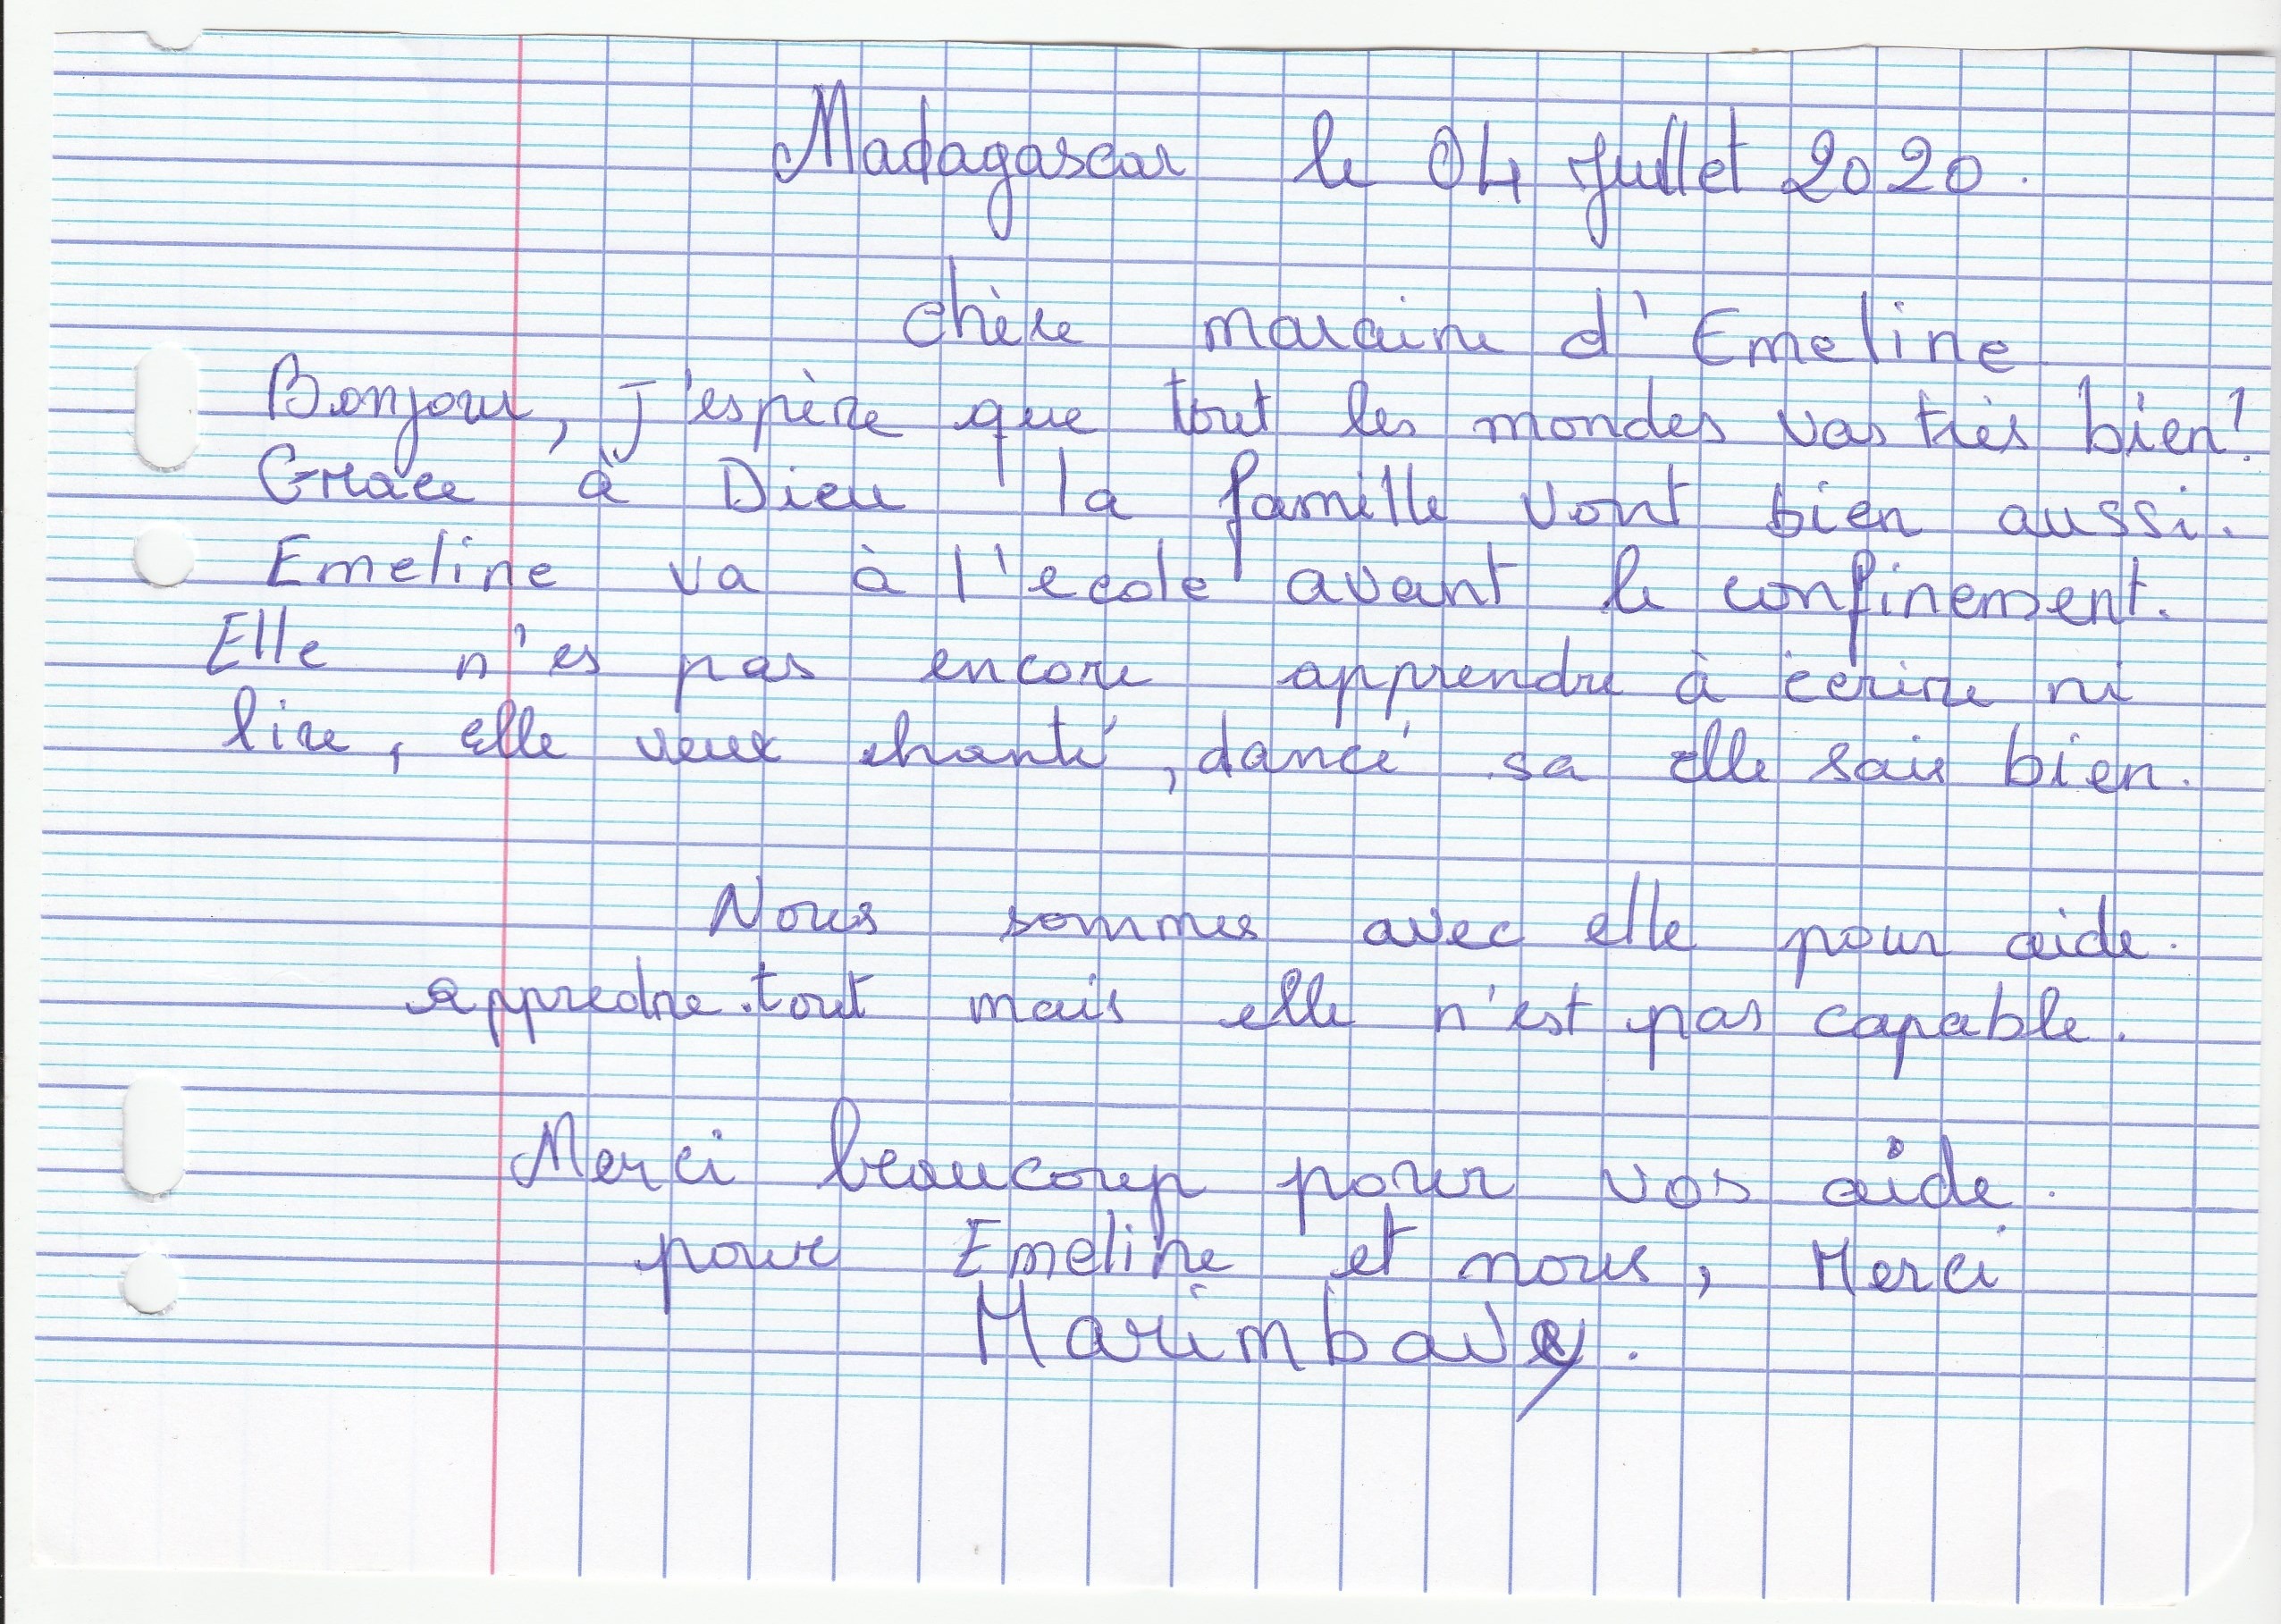 Madagascar le 04 Juillet 2020.
chère maraine d'Emeline
Bonjour, J'espère que tout les mondes vas très bien!
Grace à Dieu la famille vont bien aussi.
Emeline va à l'ecole avant le confinement.
Elle n'es pas encore apprendre à écrire ni
lire, elle veux chanté, dancé sa elle sais bien.
Nous sommes avec elle pour aide.
appredre.tout mais elle n'est pas capable.
Merci beaucoup pour vos aide.
pour Emeline et nous, Merci
Marimbavy.